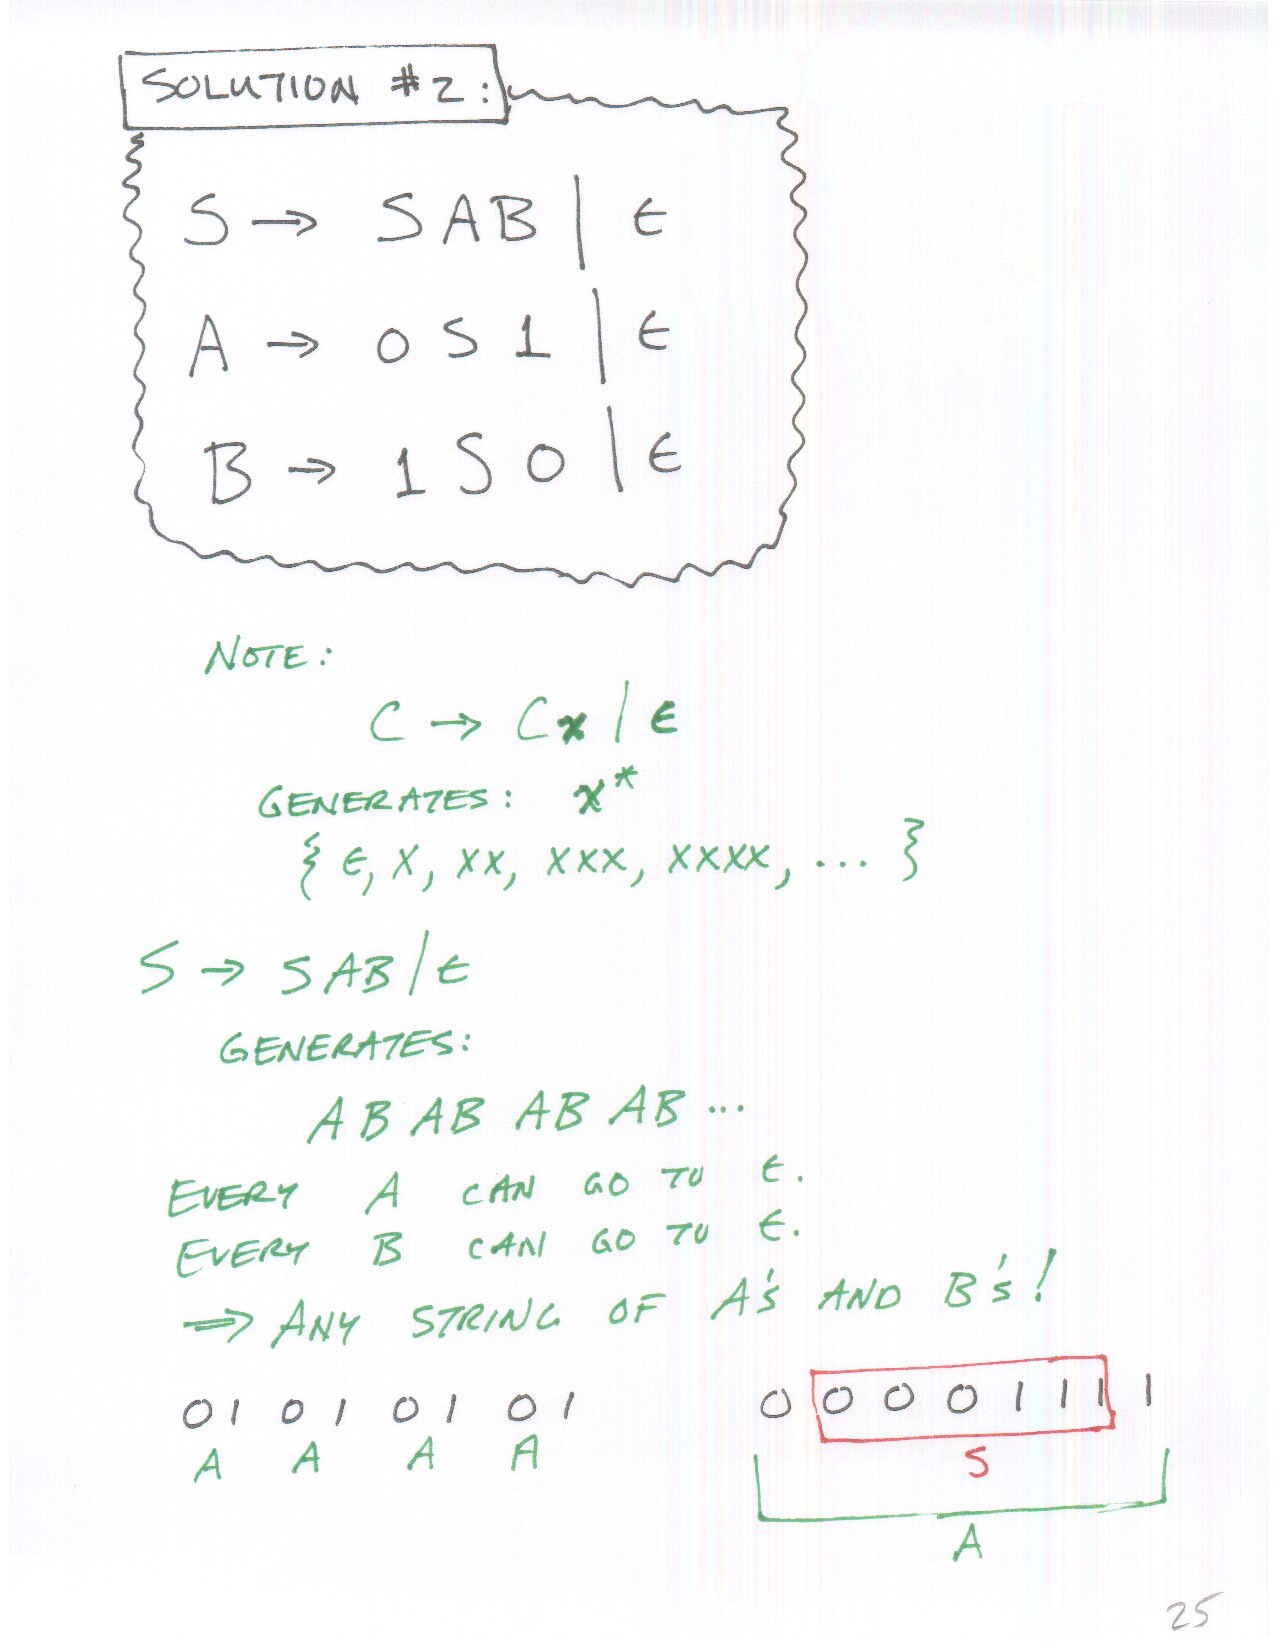 SOLUTION #2:
S → SAB | ϵ
A → 0S1 | ϵ
B → 1S0 | ϵ
NOTE:
C → Cx | ϵ
GENERATES: x*
{ ϵ, x, xx, xxx, xxxx, ... }
S → SAB | ϵ
GENERATES:
AB AB AB AB ...
EVERY A CAN GO TO ϵ.
EVERY B CAN GO TO ϵ.
⇒ ANY STRING OF A's AND B's!
01 01 01 01
A A A A
0 0 0 0 1 1 1 1
S
A
25